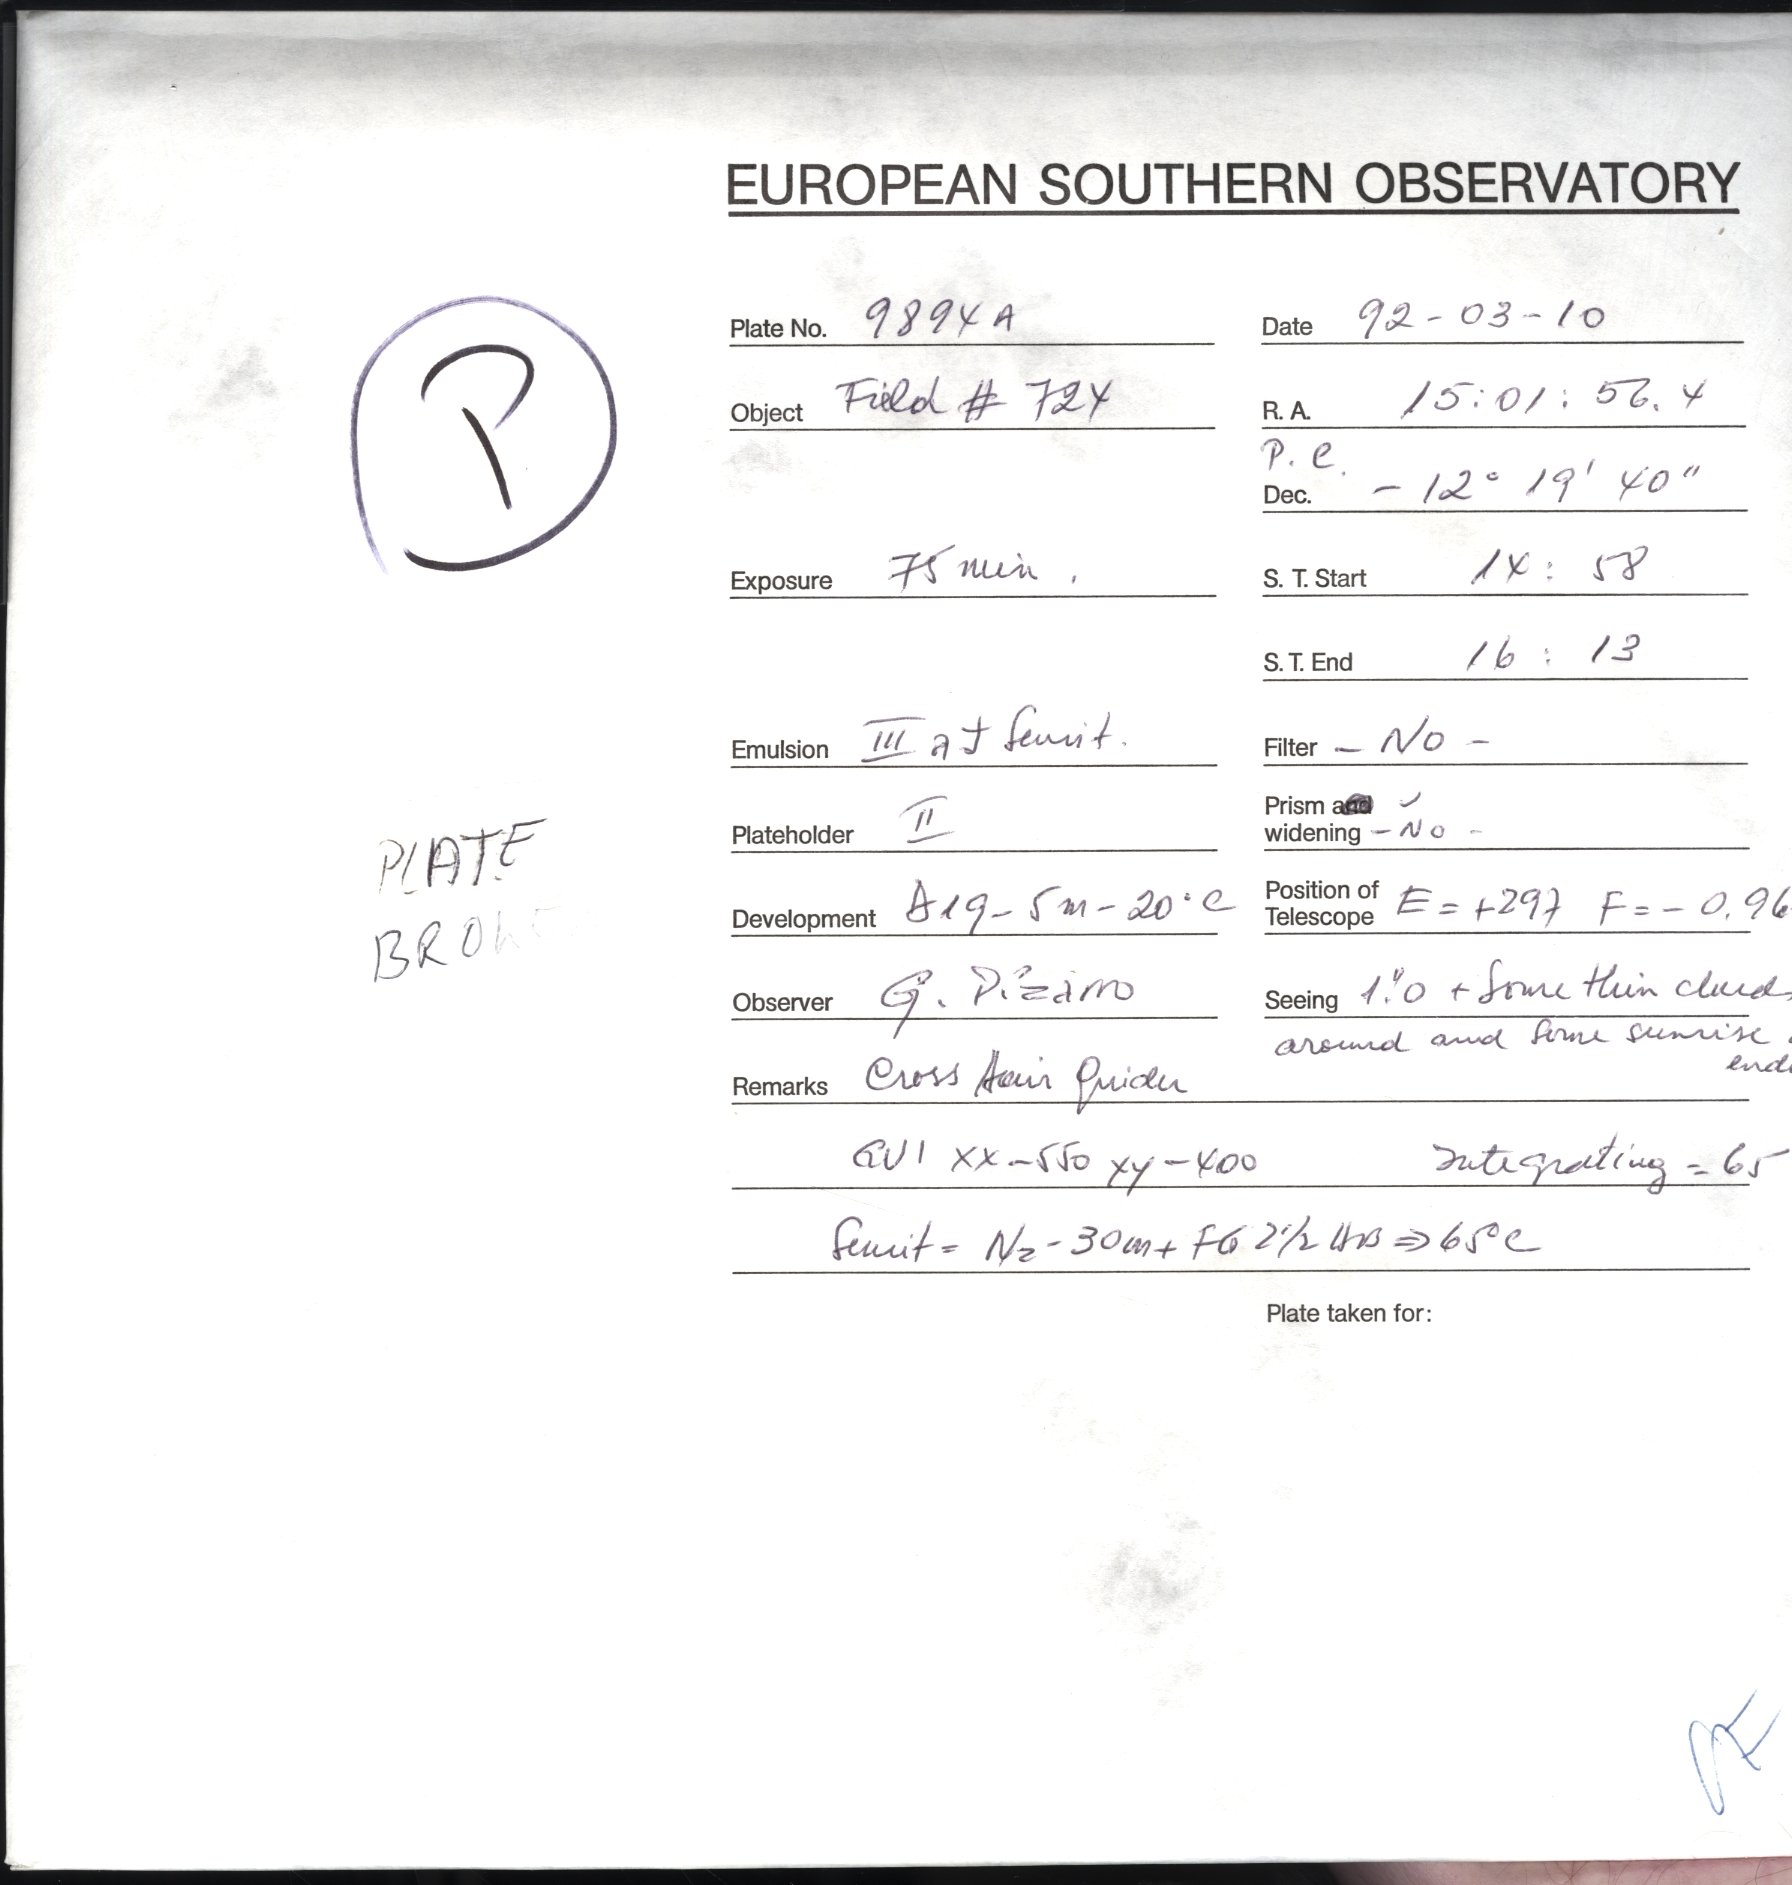 EUROPEAN SOUTHERN OBSERVATORY
Plate No. 9894A
Date 92-03-10
Object Field # 724
R. A. 15:01:56.4
P. C.
Dec. - 12° 19' 40"
Exposure 75 min.
S. T. Start 14: 58
S. T. End 16: 13
Emulsion III aJ Sensit.
Filter - No -
Plateholder II
Prism and
widening - No -
Development D19-5m-20°C
Position of
Telescope E=+297 F=-0.96
Observer G. Pizarro
Seeing 1".0 + some thin clouds
around and some sunrise
Remarks Cross hair guider
GV1 XX-550 XY-400 Integrating = 65
Sensit = N2-30m + FG 2 1/2 Hrs => 65°C
Plate taken for:
P
PLATE